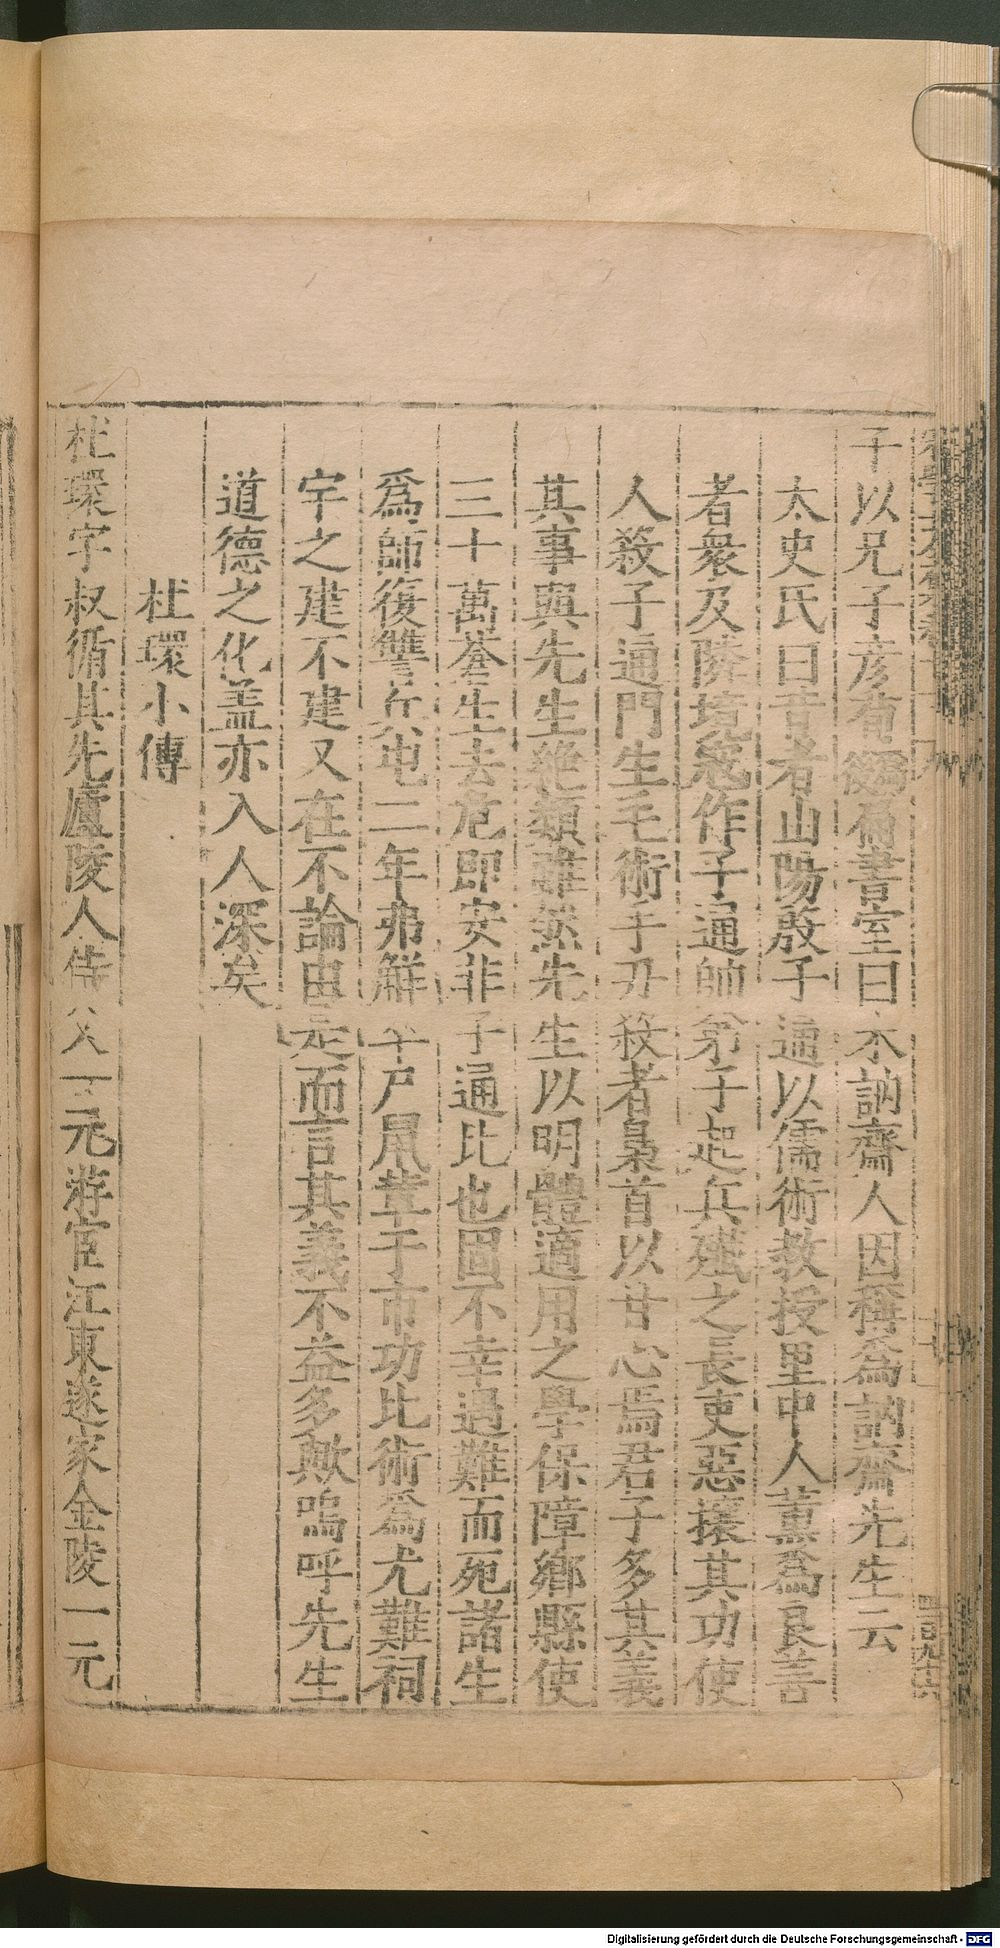 子以兄子彥有嗣爲書室曰木訥齋人因稱爲訥齋先生云
太史氏曰昔者山陽殷子通以儒術教授里中人薰爲良善
者衆及隣境寇作子通帥弟子起兵殲之長吏惡攘其功使
人殺子通門生毛術手刃殺者梟首以甘心焉君子多其義
其事與先生絶類雖然先生以明體適用之學保障鄉縣使
三十萬蒼生去危即安非子通比也固不幸遇難而死諸生
爲師復讐兵屯二年弗解卒尸鼠輩于市功比術爲尤難祠
宇之建不建又在不論由是而言其義不益多歟嗚呼先生
道德之化盖亦入人深矣
杜環小傳
杜環字叔循其先廬陵人侍父一元游宦江東遂家金陵一元
Digitalisierung gefördert durch die Deutsche Forschungsgemeinschaft - DFG